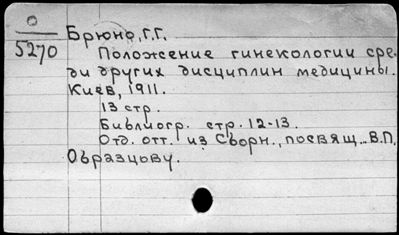 О
5270
Брюно, Г.Г.
Положение гинекологии сре-
ди других дисциплин медицины.
Киев, 1911.
13 стр.
Библиогр. стр. 12-13.
Отд. отт. из Сборн., посвящ. В.П.
Образцову.